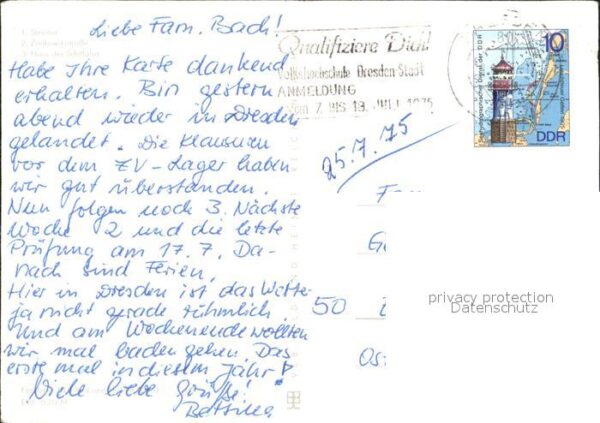 Liebe Fam. Bach!
Habe Ihre Karte dankend
erhalten. Bin gestern
abend wieder in Dresden
gelandet. Die Klausuren
vor dem ZV-Lager haben
wir gut überstanden.
Nun folgen noch 3. Nächste
Woche 2 und die letzte
Prüfung am 17.7. Da-
nach sind Ferien.
Hier in Dresden ist das Wetter
ja nicht gerade rühmlich.
Und am Wochenende wollten
wir mal baden gehen. Das
erste mal in diesem Jahr!
Viele liebe Grüße!
Qualifiziere Dich!
Volkshochschule Dresden-Stadt
ANMELDUNG
vom 7. BIS 18. JULI 1975
10
DDR
25.7.75
50
privacy protection
Datenschutz